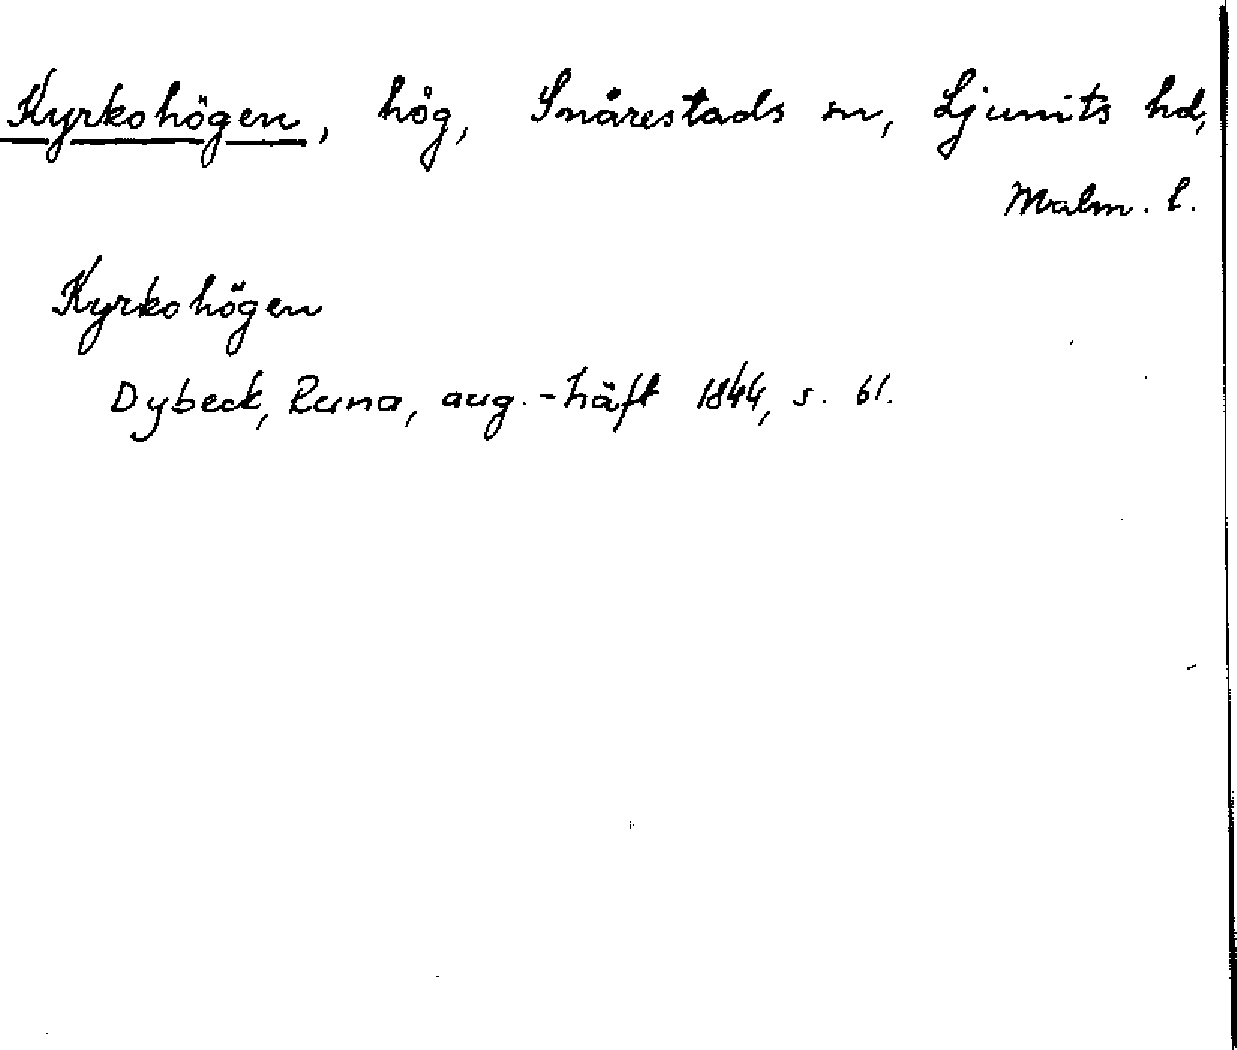 Kyrkohögen, hög, Snårestads sn, Ljunits hd,
Malm. l.
Kyrkohögen
Dybeck, Runa, aug.-häft 1844, s. 61.